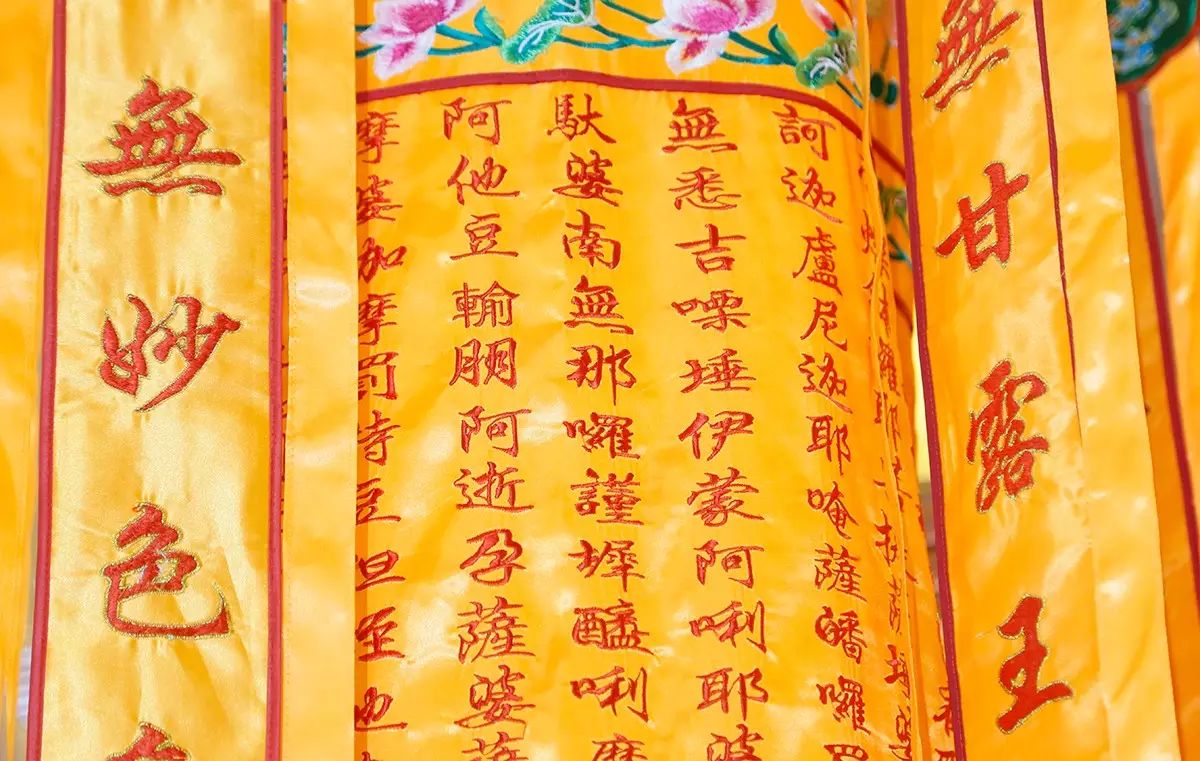 無甘露王
訶迦盧尼迦耶唵薩皤囉罰
無悉吉嘌埵伊蒙阿唎耶婆
馱婆南無那囉謹墀醯唎摩
阿他豆輸朋阿逝孕薩婆薩
摩婆伽摩罰特豆怛姪他
無妙色